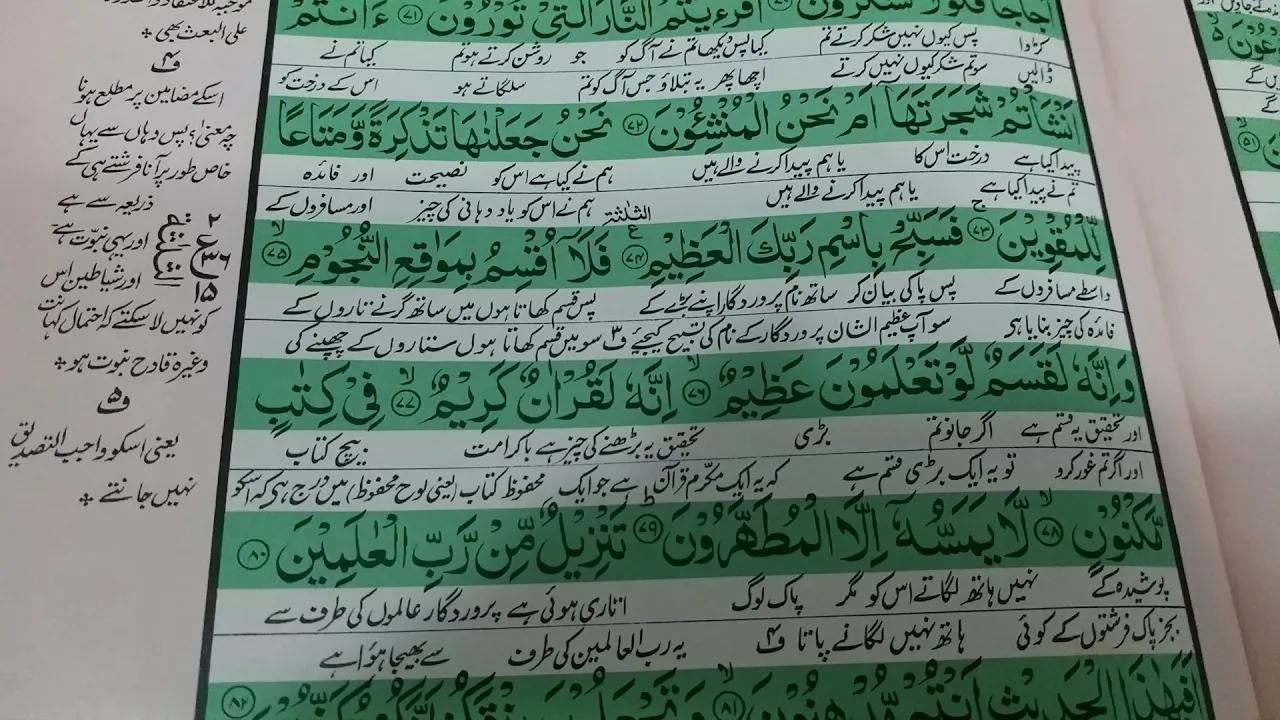 فَلَوْلَا تَشْكُرُوْنَ ﴿۷۰﴾ اَفَرَءَيْتُمُ النَّارَ الَّتِيْ تُوْرُوْنَ ﴿۷۱﴾ ءَاَنْتُمْ
کڑوا پس کیوں نہیں شکر کرتے تم کیا پس دیکھا تم نے آگ کو جو روشن کرتے ہو تم کیا تم نے
ڈالیں سو تم شکر کیوں نہیں کرتے اچھا پھر یہ بتلاؤ جس آگ کو تم سلگاتے ہو اس کے درخت کو
اَنْشَاْتُمْ شَجَرَتَهَآ اَمْ نَحْنُ الْمُنْشِئُوْنَ ﴿۷۲﴾ نَحْنُ جَعَلْنٰهَا تَذْكِرَةً وَّمَتَاعًا
پیدا کیا ہے درخت اس کا یا ہم پیدا کرنے والے ہیں ہم نے کیا ہے اس کو نصیحت اور فائدہ
تم نے پیدا کیا ہے یا ہم پیدا کرنے والے ہیں ہم نے اس کو یاد دہانی کی چیز اور مسافروں کے
لِّلْمُقْوِيْنَ ﴿۷۳﴾ فَسَبِّحْ بِاسْمِ رَبِّكَ الْعَظِيْمِ ﴿۷۴﴾ فَلَآ اُقْسِمُ بِمَوٰقِعِ النُّجُوْمِ ﴿۷۵﴾
واسطے مسافروں کے پس پاکی بیان کر ساتھ نام پروردگار اپنے بڑے کے پس قسم کھاتا ہوں میں ساتھ گرنے تاروں کے
فائدہ کی چیز بنایا ہے سو آپ عظیم الشان پروردگار کے نام کی تسبیح کیجئے ف۳ سو میں قسم کھاتا ہوں ستاروں کے چھپنے کی
وَاِنَّهٗ لَقَسَمٌ لَّوْ تَعْلَمُوْنَ عَظِيْمٌ ﴿۷۶﴾ اِنَّهٗ لَقُرْاٰنٌ كَرِيْمٌ ﴿۷۷﴾ فِيْ كِتٰبٍ
اور تحقیق یہ قسم ہے اگر جانو تم بڑی تحقیق یہ پڑھنے کی چیز ہے باکرامت بیچ کتاب
اور اگر تم غور کرو تو یہ ایک بڑی قسم ہے کہ یہ ایک مکرم قرآن ہے جو ایک محفوظ کتاب (یعنی لوح محفوظ) میں درج ہے کہ اسکو
مَّكْنُوْنٍ ﴿۷۸﴾ لَّا يَمَسُّهٗٓ اِلَّا الْمُطَهَّرُوْنَ ﴿۷۹﴾ تَنْزِيْلٌ مِّنْ رَّبِّ الْعٰلَمِيْنَ ﴿۸۰﴾
پوشیدہ کے نہیں ہاتھ لگاتے اس کو مگر پاک لوگ اتاری ہوئی ہے پروردگار عالموں کی طرف سے
بجز پاک فرشتوں کے کوئی ہاتھ نہیں لگانے پاتا ف۴ یہ رب العالمین کی طرف سے بھیجا ہوا ہے
اَفَبِهٰذَا الْحَدِيْثِ اَنْتُمْ مُّدْهِنُوْنَ ﴿۸۱﴾ وَتَجْعَلُوْنَ رِزْقَكُمْ اَنَّكُمْ تُكَذِّبُوْنَ ﴿۸۲﴾
علی البعث بھی *
ف۴
اسکے مضامین پر مطلع ہونا
چہ معنی؟ پس وہاں سے یہاں
خاص طور پر آنا فرشتے ہی کے
ذریعہ سے ہے
اور یہی نبوت ہے
اور شیاطین اس
کو نہیں لا سکتے کہ احتمال کہانت
وغیرہ قادح نبوت ہو *
ف۵
یعنی اسکو واجب التصدیق
نہیں جانتے *